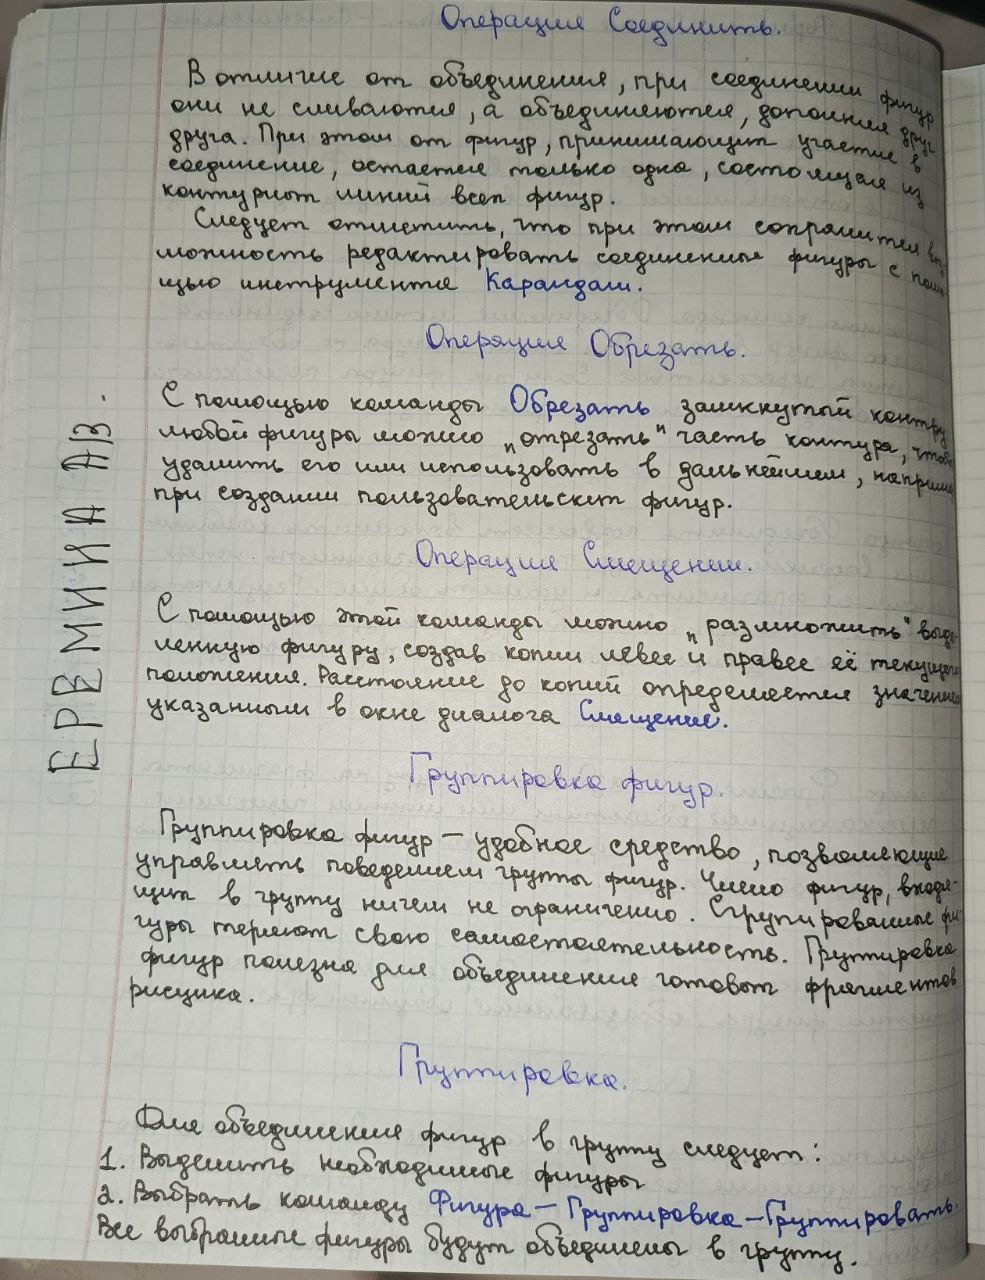 Операция Соединить.
В отличие от объединения, при соединении фигур
они не сливаются, а объединяются, дополняя друг
друга. При этом от фигур, принимающих участие в
соединение, остается только одна, состоящая из
контурных линий всех фигур.
Следует отметить, что при этом сохранится воз-
можность редактировать соединенные фигуры с помо-
щью инструмента Карандаш.
Операция Обрезать.
С помощью команды Обрезать замкнутый контур
любой фигуры можно "отрезать" часть контура, чтобы
удалить его или использовать в дальнейшем, например
при создании пользовательских фигур.
Операция Смещении.
С помощью этой команды можно "размножить" выде-
ленную фигуру, создав копии левее и правее её текущего
положения. Расстояние до копий определяется значением
указанным в окне диалога Смещение.
Группировка фигур.
Группировка фигур - удобное средство, позволяющие
управлять поведением группы фигур. Число фигур, входя-
щих в группу ничем не ограниченно. Сгрупированные фи-
гуры теряют свою самостоятельность. Группировка
фигур полезна для объединения готовых фрагментов
рисунка.
Группировка.
Для объединение фигур в группу следует:
1. Выделить необходимые фигуры
2. Выбрать команду Фигура - Группировка - Группировать.
Все выбранные фигуры будут объединены в группу.
ЕРЕМИНА АВ.